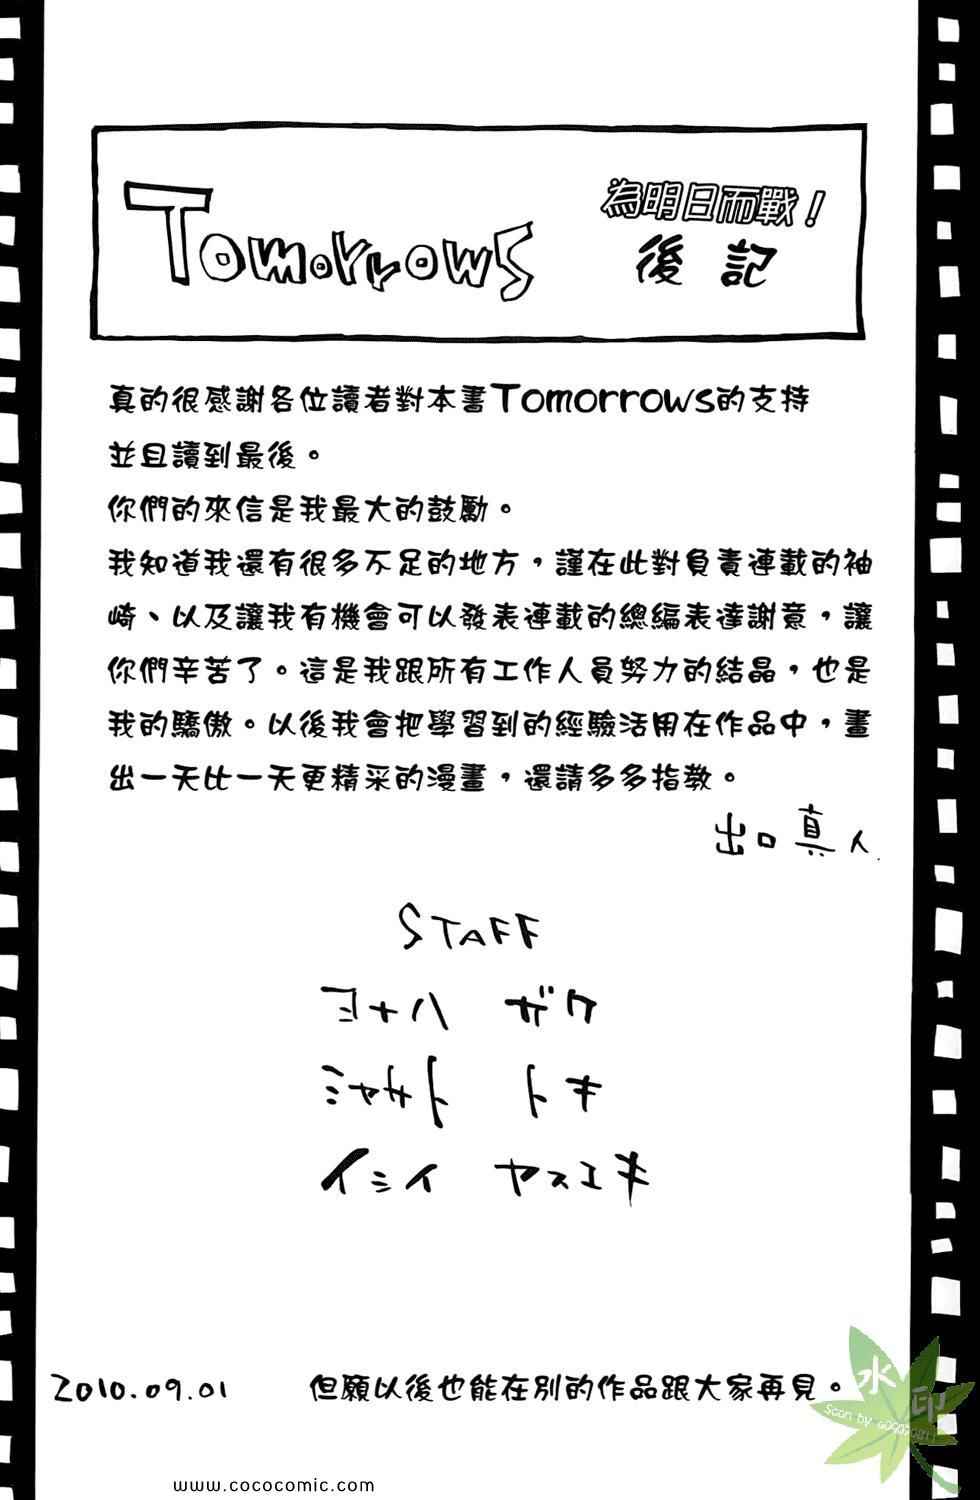 Tomorrows
為明日而戰！
後記
真的很感謝各位讀者對本書Tomorrows的支持
並且讀到最後。
你們的來信是我最大的鼓勵。
我知道我還有很多不足的地方，謹在此對負責連載的袖
崎、以及讓我有機會可以發表連載的總編表達謝意，讓
你們辛苦了。這是我跟所有工作人員努力的結晶，也是
我的驕傲。以後我會把學習到的經驗活用在作品中，畫
出一天比一天更精采的漫畫，還請多多指教。
出口真人
STAFF
ヨナハ ガク
シャサト トキ
イシイ ヤスユキ
2010.09.01 但願以後也能在別的作品跟大家再見。
水印
Scan by
www.cococomic.com